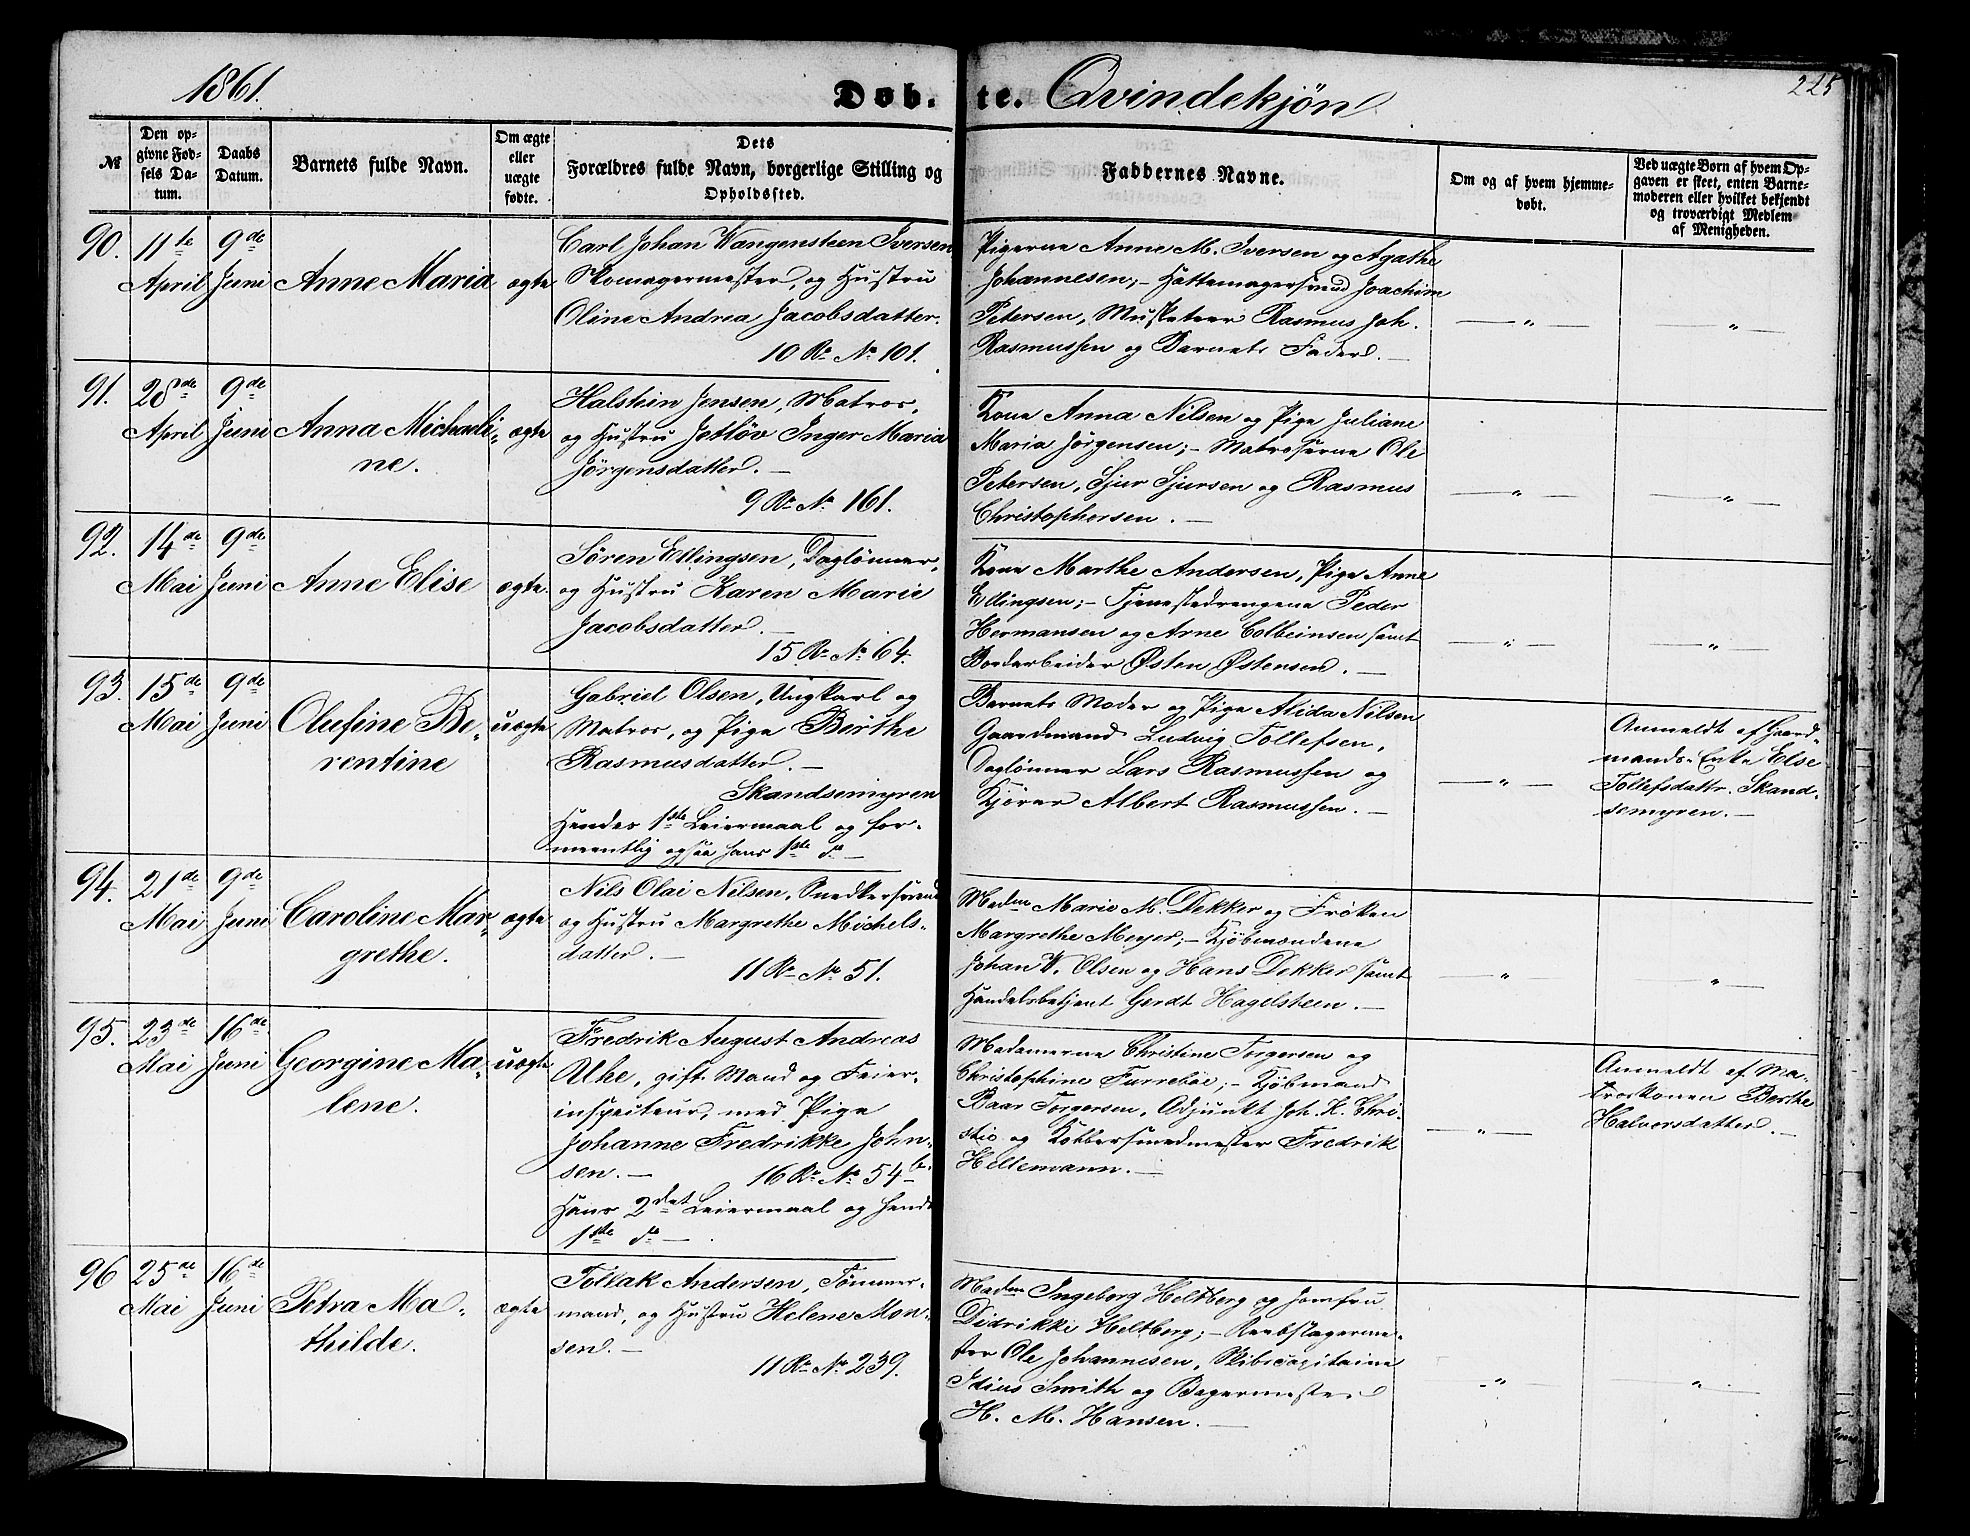 1861.
Døb-te. Qvindekjøn
225
№
Den opgivne Fødsels Datum.
Daabs Datum.
Barnets fulde Navn.
Om ægte eller uægte fødte.
Dets Forældres fulde Navn, borgerlige Stilling og Opholdssted.
Faddernes Navne.
Om og af hvem hjemmedøbt.
Ved uægte Børn af hvem Opgaven er skeet, enten Barnemoderen eller hvilket bekjendt og troværdigt Medlem af Menigheden.
90.
11te April
9de Juni
Anne Maria
ægte
Carl Johan Wangensteen Iversen
Skomagermester, og Hustru
Oline Andrea Jacobsdatter.
10 R. No 101.
Pigerne Anne M. Iversen og Agathe
Johannesen; - Hattemagersvend Joachim
Petersen, Musketeer Rasmus Joh.
Rasmussen og Barnets Fader. -
91.
28de April
9de Juni
Anna Michaeli-
ne.
ægte
Halstein Jensen, Matros,
og Hustru Jetløv Inger Maria
Jörgensdatter. -
9 R. No 161.
Kone Anna Nilsen og Pige Juliane
Maria Jörgensen; - Matroserne Ole
Petersen, Sjur Sjursen og Rasmus
Christophersen. -
92.
14de Mai
9de Juni
Anne Elise
ægte.
Søren Ellingsen, Daglønner,
og Hustru Karen Marie
Jacobsdatter. -
15 R. No 64.
Kone Marthe Andersen, Pige Anne
Ellingsen; - Tjenestedrengene Peder
Hermansen og Arne Colbeinsen samt
Bordarbeider Østen Østensen. -
93.
15de Mai
9de Juni
Olufine Be-
rentine
uægte
Gabriel Olsen, Ungkarl og
Matros, og Pige Berthe
Rasmusdatter. -
Skandsemyren
Hendes 1ste Leiermaal og for-
meentlig ogsaa hans 1ste do -
Barnets Moder og Pige Alida Nilsen
Gaardmand Ludvig Tollefsen,
Daglønner Lars Rasmussen og
Kjører Albert Rasmussen. -
Anmeldt af Gaard-
mands-Enke Else
Tollefsdattr. Skand-
semyren. -
94.
21de Mai
9de Juni
Caroline Mar-
grethe.
ægte
Nils Olai Nilsen, Snedkersvend
og Hustru Margrethe Michels-
datter. -
11 R. No 51.
Madm Marie M. Dekker og Frøken
Margrethe Meyer; - Kjøbmændene
Johan W. Olsen og Hans Dekker samt
Handelsbetjent Gerdt Hagelsteen. -
95.
23de Mai
16de Juni
Georgine Ma-
lene.
uægte
Fredrik August Andreas
Uhe, gift Mand og Feier-
inspecteur, med Pige
Johanne Fredrikke John-
sen. - 16 R. No 54 b.
Hans 2det Leiermaal og hendes
1ste do - .
Madamerne Christine Torgersen og
Christophine Furreböe; - Kjöbmand
Baar Torgersen, Adjunkt Joh. K. Chri-
stie og Kobbersmedmester Fredrik
Heltemann. -
Anmeldt af Ma-
troskonen Berthe
Halvorsdatter. -
96
25de Mai
16de Juni
Petra Ma-
thilde.
ægte
Tollak Andersen, Tømmer-
mand, og Hustru Helene Mon-
sen. -
11 R. No 239.
Madm Ingeborg Heltberg og Jomfru
Didrikke Heltberg; - Reebslagerme-
ster Ole Johannesen, Skibscapitaine
Idius Smith og Bagermester
H. M. Hansen. -